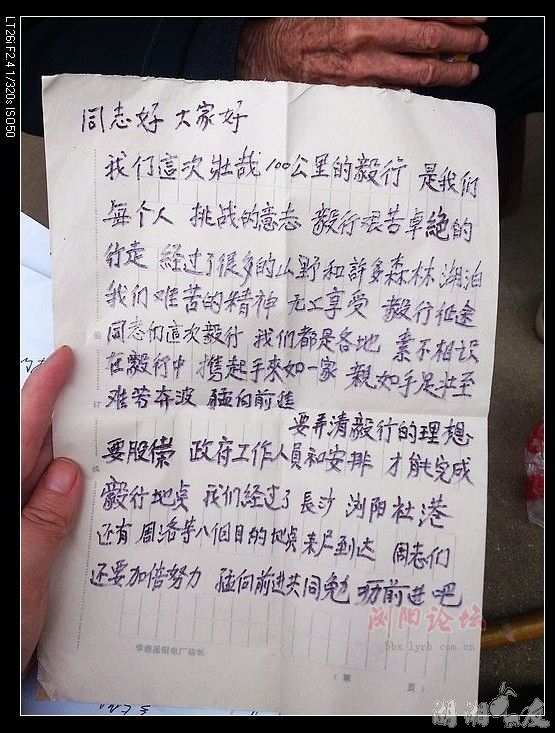 LT26i F2.4 1/320s ISO50
同志好 大家好
我们這次壮哉100公里的毅行 是我们
每个人 挑战的意志 毅行艰苦卓絶的
行走 经过了很多的山野和許多森林湖泊
我们难苦的精神 无上享受 毅行征途
同志们這次毅行 我们都是各地 素不相识
在毅行中 携起手來如一家 親如手足壮至
难苦奔波 猛向前進
要弄清毅行的理想
要服從 政府工作人員和安排 才能完成
毅行地点 我们经过了 長沙 浏阳社港
还有 周洛等八個目的地点 未尽到达 同志们
还要加倍努力 猛向前进共同勉 励前进吧
华能岳阳电厂稿纸
(第 页)
浏阳论坛
bbs.lyrb.com.cn